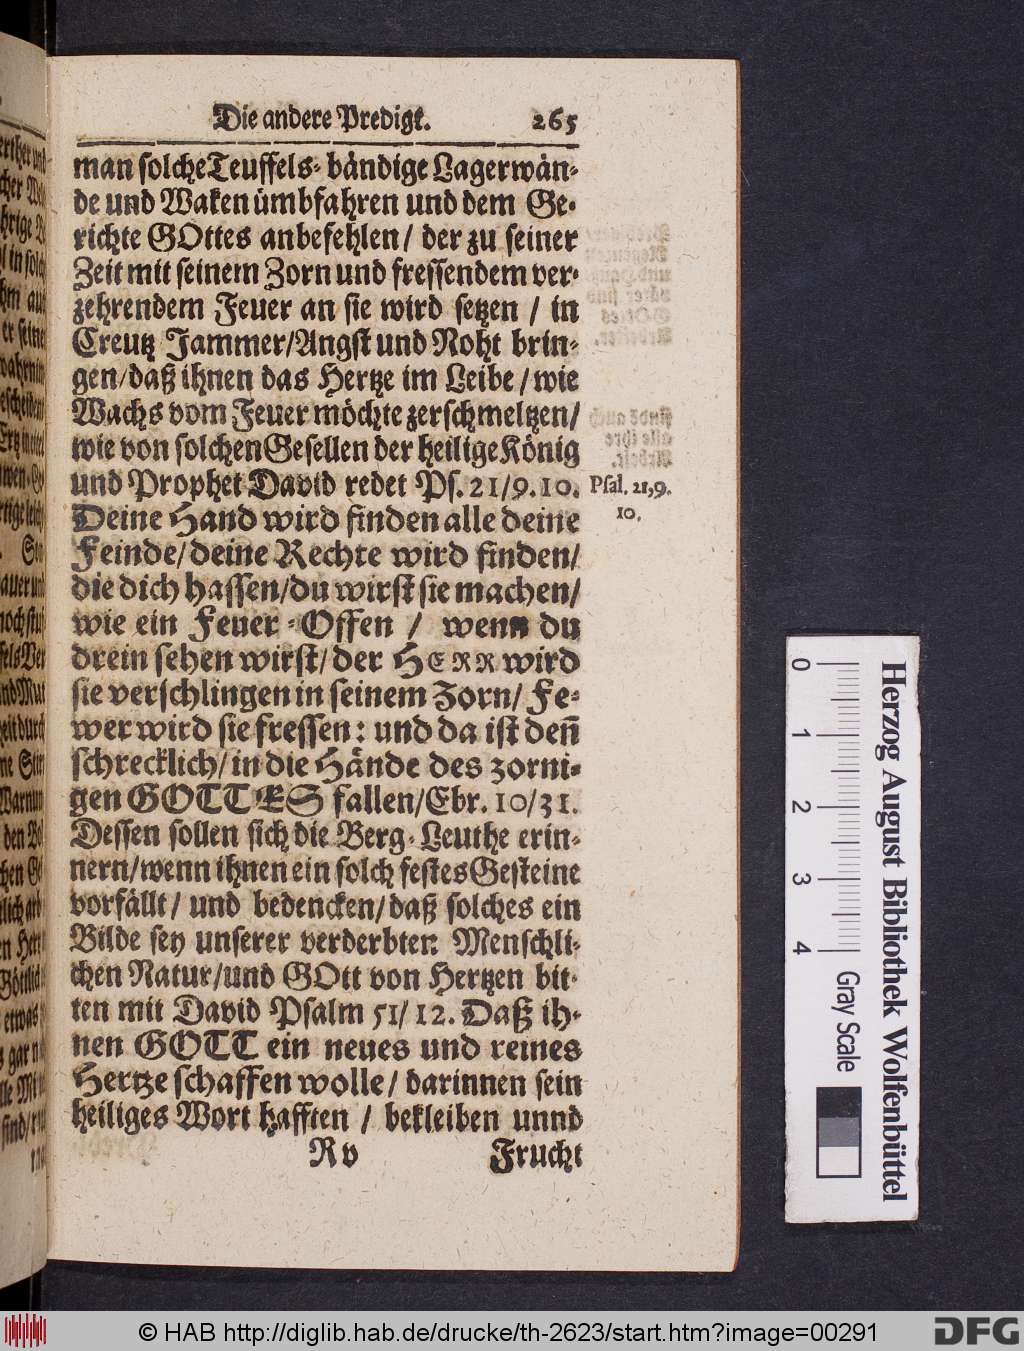 Die andere Predigt. 265
man solche Teuffels-bändige Lagerwän-
de und Waken ümbfahren und dem Ge-
richte GOttes anbefehlen/ der zu seiner
Zeit mit seinem Zorn und fressendem ver-
zehrendem Feuer an sie wird setzen / in
Creutz Jammer/Angst und Noht brin-
gen/daß ihnen das Hertze im Leibe / wie
Wachs vom Feuer möchte zerschmeltzen/
wie von solchen Gesellen der heilige König
und Prophet David redet Ps. 21/9.10.
Psal. 21,9.
10.
Deine Hand wird finden alle deine
Feinde/deine Rechte wird finden/
die dich hassen/du wirst sie machen/
wie ein Feuer-Offen / wenn du
drein sehen wirst/der HERR wird
sie verschlingen in seinem Zorn/ Fe-
wer wird sie fressen: und da ist deñ
schrecklich/in die Hände des zorni-
gen GOTTES fallen/Ebr. 10/31.
Dessen sollen sich die Berg-Leuthe erin-
nern/wenn ihnen ein solch festes Gesteine
vorfällt/ und bedencken/daß solches ein
Bilde sey unserer verderbten Menschli-
chen Natur/und GOtt von Hertzen bit-
ten mit David Psalm 51/12. Daß ih-
nen GOTT ein neues und reines
Hertze schaffen wolle/ darinnen sein
heiliges Wort hafften / bekleiben unnd
R v Frucht
0 1 2 3 4
Gray Scale
Herzog August Bibliothek Wolfenbüttel
© HAB http://diglib.hab.de/drucke/th-2623/start.htm?image=00291
DFG